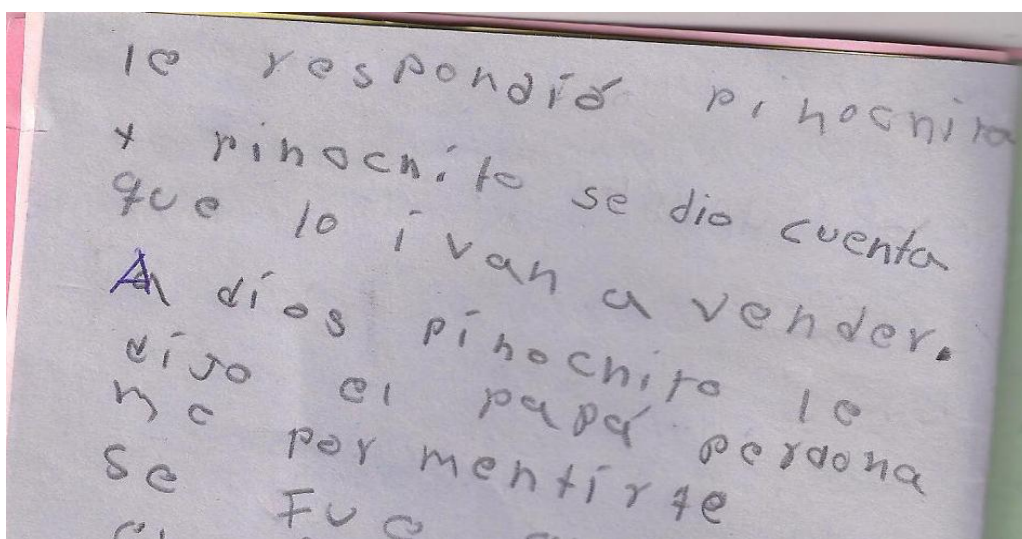 le respondió pinochita
y pinochito se dio cuenta
que lo ivan a vender.
A dios pinochito le
dijo el papá perdona
me por mentirte
se fue